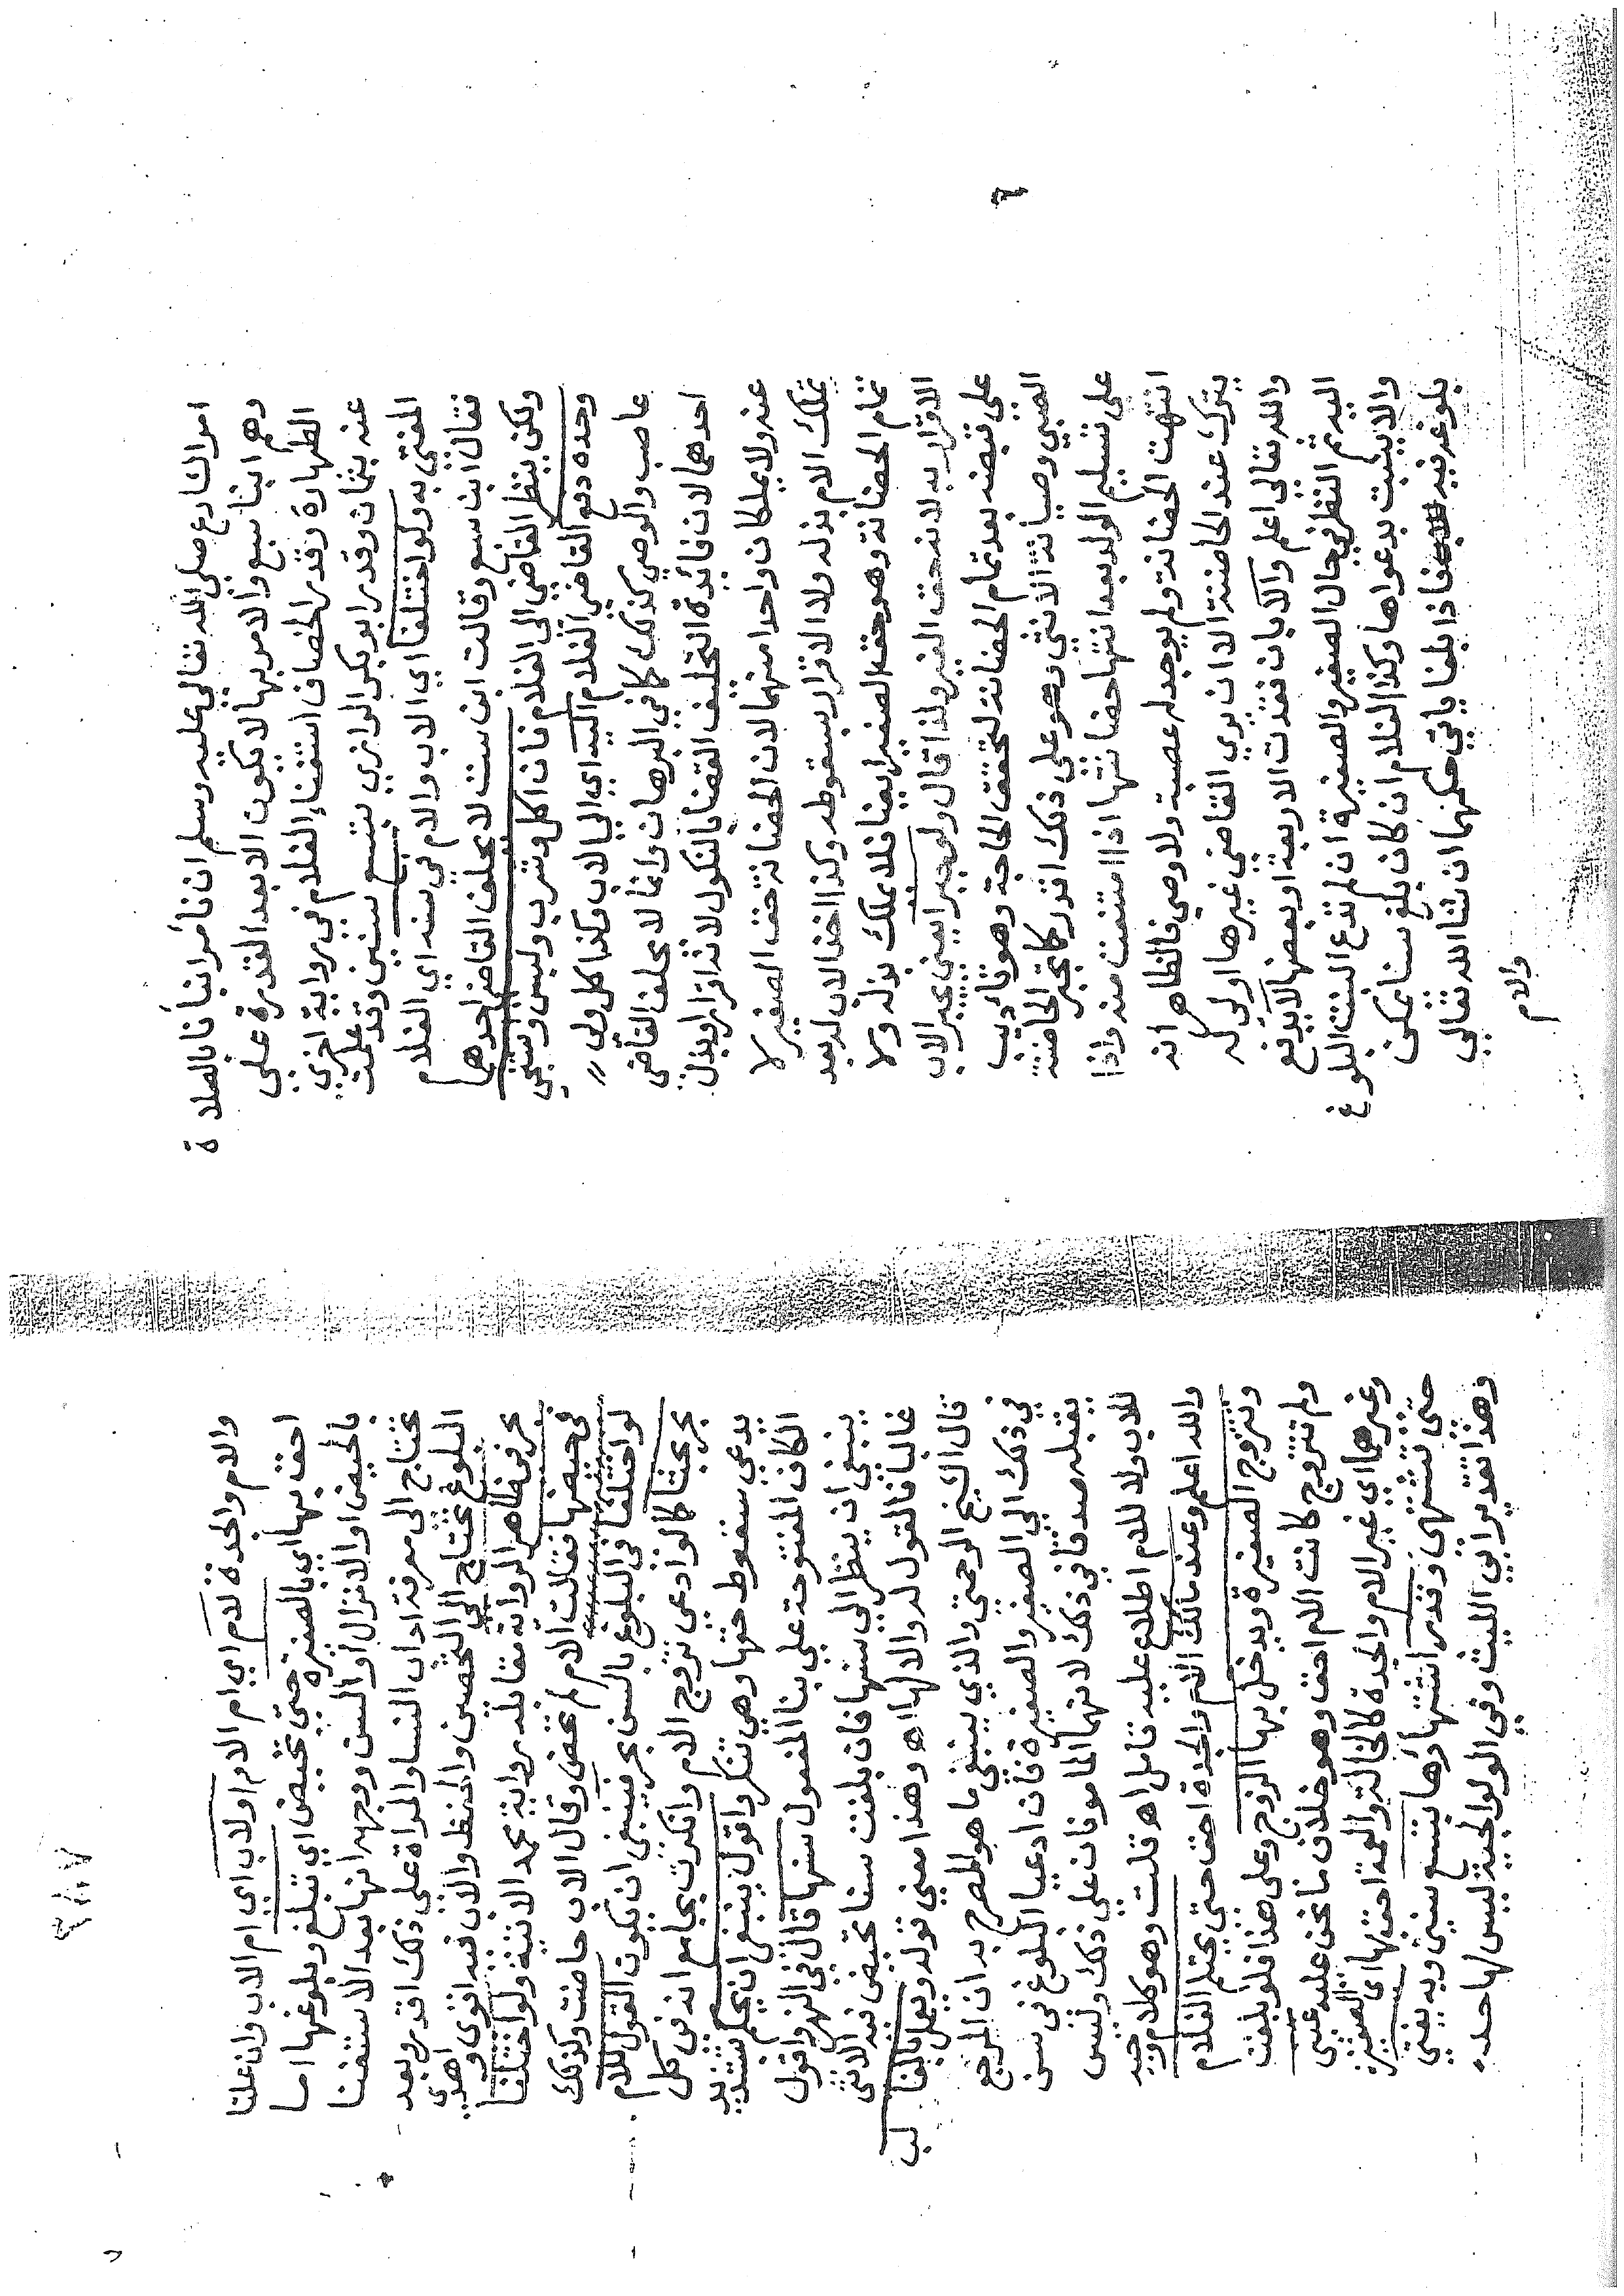 امر الشارع صلي الله تعالي عليه وسلم ان نأمر ابنأنا بالصلاة
وهم ابنا سبع والامر بها لا يكون الا بعد القدرة علي
الطهارة وقدر الخصاف استغناء الغلام في رواية اخري
عنه بثمان وقدر ابو بكر الرازي بتسع سنين وقد علمت
المفتي به ولو اختلفا اي الاب والام في سنه اي الغلام
فقال ابن سبع وقالت ابن ست لا يحلف القاضي احدهما
ولكن ينظر القاضي الي الغلام فان اكل وشرب ولبس واستنجي
وحده دفع القاضي الغلام اليه اي الي الاب وكذا كل ولي
عاصب والوصي كذلك كما في البرهان وانما لا يحلف القاضي
احدهما لان فايدة التحليف القضا بالنكول لانه اقرار او بذل
عنه ولا يملكان واحدا منهما لان الحضانة حق الصغير لا
تملك الام بذله ولا الاقرار بسقوطه وكذا اخذ الاب له بعد
تمام الحضانة وهو حق الصغير ايضا فلا يملك بذله ولا
الاقرار به لانه حق الغير ولذا قال ولو جبرا يعني يجبر الاب
علي قبضه بعد تمام الحضانة لتحقق الحاجة وهو تاديب
الصبي وصيانة الانثي وهو علي ذلك اقدر كما تجبر الحاضنة
علي تسليم الولد بعد انتها حضانتها اذا امتنعت منه واذا
انتهت الحضانة ولم يوجد له عصبة ولا وصي فالظاهر انه
يترك عند الحاضنة الا ان يري القاضي غيرها اولي له
والله تعالي اعلم والا بان فقدت الاربعة او بعضها لا يدفع
اليه ثم النظر في حال الصغير والصغيرة ان لم تدع البنت البلوغ
والا يثبت بدعواها وكذا الغلام ان كان بلغ سنا يمكن
بلوغه فيه فاذا بلغا ياتي حكمهما ان شا الله تعالي
والام
والام والجدة لام اي ام الام او لاب اي ام الاب وان علتا
احق بها اي بالصغيرة حتي تحيض اي تبلغ وبلوغها اما
بالحيض او الانزال أو السن ووجهه انها بعد الاستغنا
تحتاج الي معرفة اداب النسا والمراة علي ذلك اقدر وبعد
البلوغ تحتاج الي التحصين والحفظ والاب فيه اقوي واهدي
بحر في ظاهر الرواية مقابله رواية محمد الاتية ولو اختلفا
في حيضها فقالت الام لم تحض وقال الاب حاضت وكذلك
لو اختلفا في البلوغ بالسن بحر فينبغي ان يكون القول للام
بحر بحثا كما لو ادعي تزوج الام وانكرت بجامع انه في كل
يدعي سقوط حقها وهي تنكر واقول ينبغي ان يحكم بتشديد
الكاف المفتوحة علي بنا المفعول سنها قال في النهر واقول
ينبغي ان ينظر الي سنها فان بلغت سنا تحيض فيه الانثي
غالبا فالقول له والا لها اه وهذا معني قوله ويعمل بالغالب
قال الشيخ الرحمتي والذي ينبغي ما هو المصرح به ان المرجع
في ذلك الي الصغير والصغيرة فان ادعيا البلوغ في سن
يقبله صدقا في ذلك لانهما المامونان علي ذلك وليس
للاب ولا للام اطلاع عليه تامل اه قلت وهو كلام وجيه
والله اعلم وعند مالك الام والجدة احق حتي يحتلم الغلام
وتتزوج الصغيرة ويدخل بها الزوج وعلي هذا فلو بلغت
ولم تتزوج كانت الام احق وهو خلاف ما نحن عليه عيني
وغيرهما اي غير الام والجدة كالخالة والعمة احق بها اي الصغيرة
حتي تشتهي وقدر اشتهاؤها بتسع سنين وبه يفتي
وهذا تقدير ابي الليث وفي الولوالجية ليس لها حد